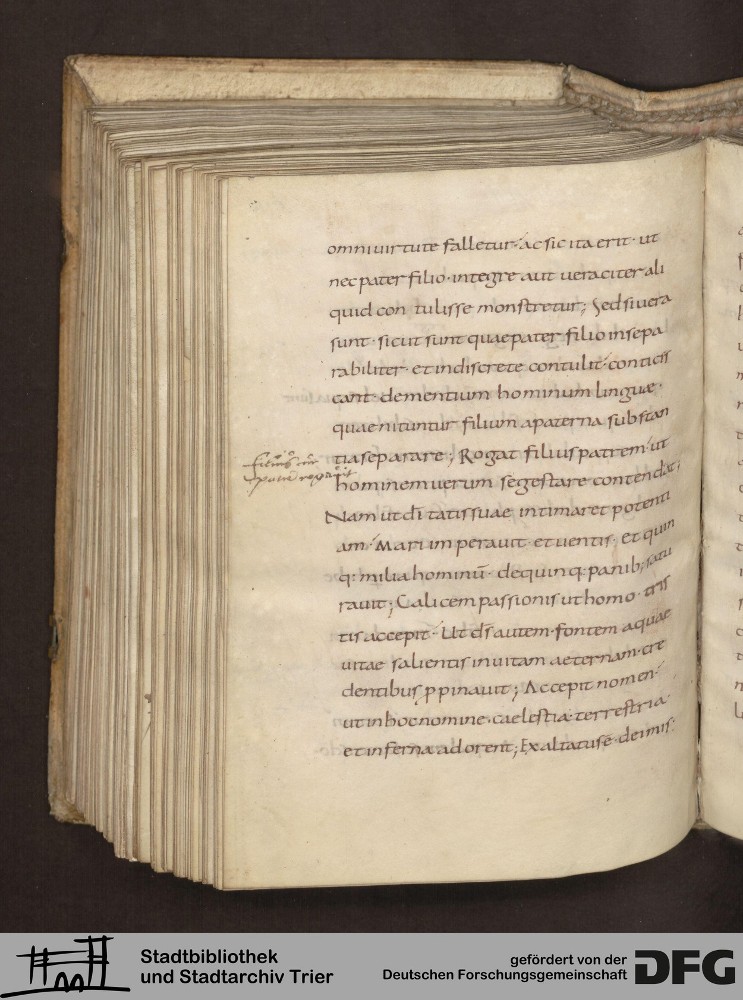 omni uirtute falletur· ac sic ita erit· ut
nec pater filio· integre aut ueraciter ali
quid con tulisse monstretur; Sed si uera
sunt· sicut sunt quae pater filio insepa
rabiliter· et indiscrete contulit· contices
cant· dementium hominum linguae·
quae nituntur filium a paterna substan
tia separare; Rogat filius patrem· ut
hominem uerum se gestare contendat;
Nam ut di tatis suae intimaret potenti
am· Mari imperauit· et uentis· et quin
q· milia hominū· de quinq· panib; satu
rauit; Calicem passionis ut homo· tris
tis accepit· Ut ds autem· fontem aquae
uitae salientis in uitam aeternam· cre
dentibus, ppinauit; Accepit nomen·
ut in hoc nomine· caelestia· terrestria·
et inferna adorent; Exaltatus ē· dei mis·
filius
patrē rogauit
Stadtbibliothek
und Stadtarchiv Trier
gefördert von der
Deutschen Forschungsgemeinschaft
DFG